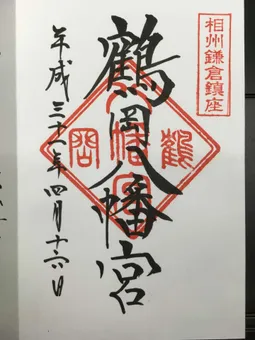 相州鎌倉鎮座
鶴岡八幡宮
平成三十一年四月十六日
鶴
岡
八幡宮